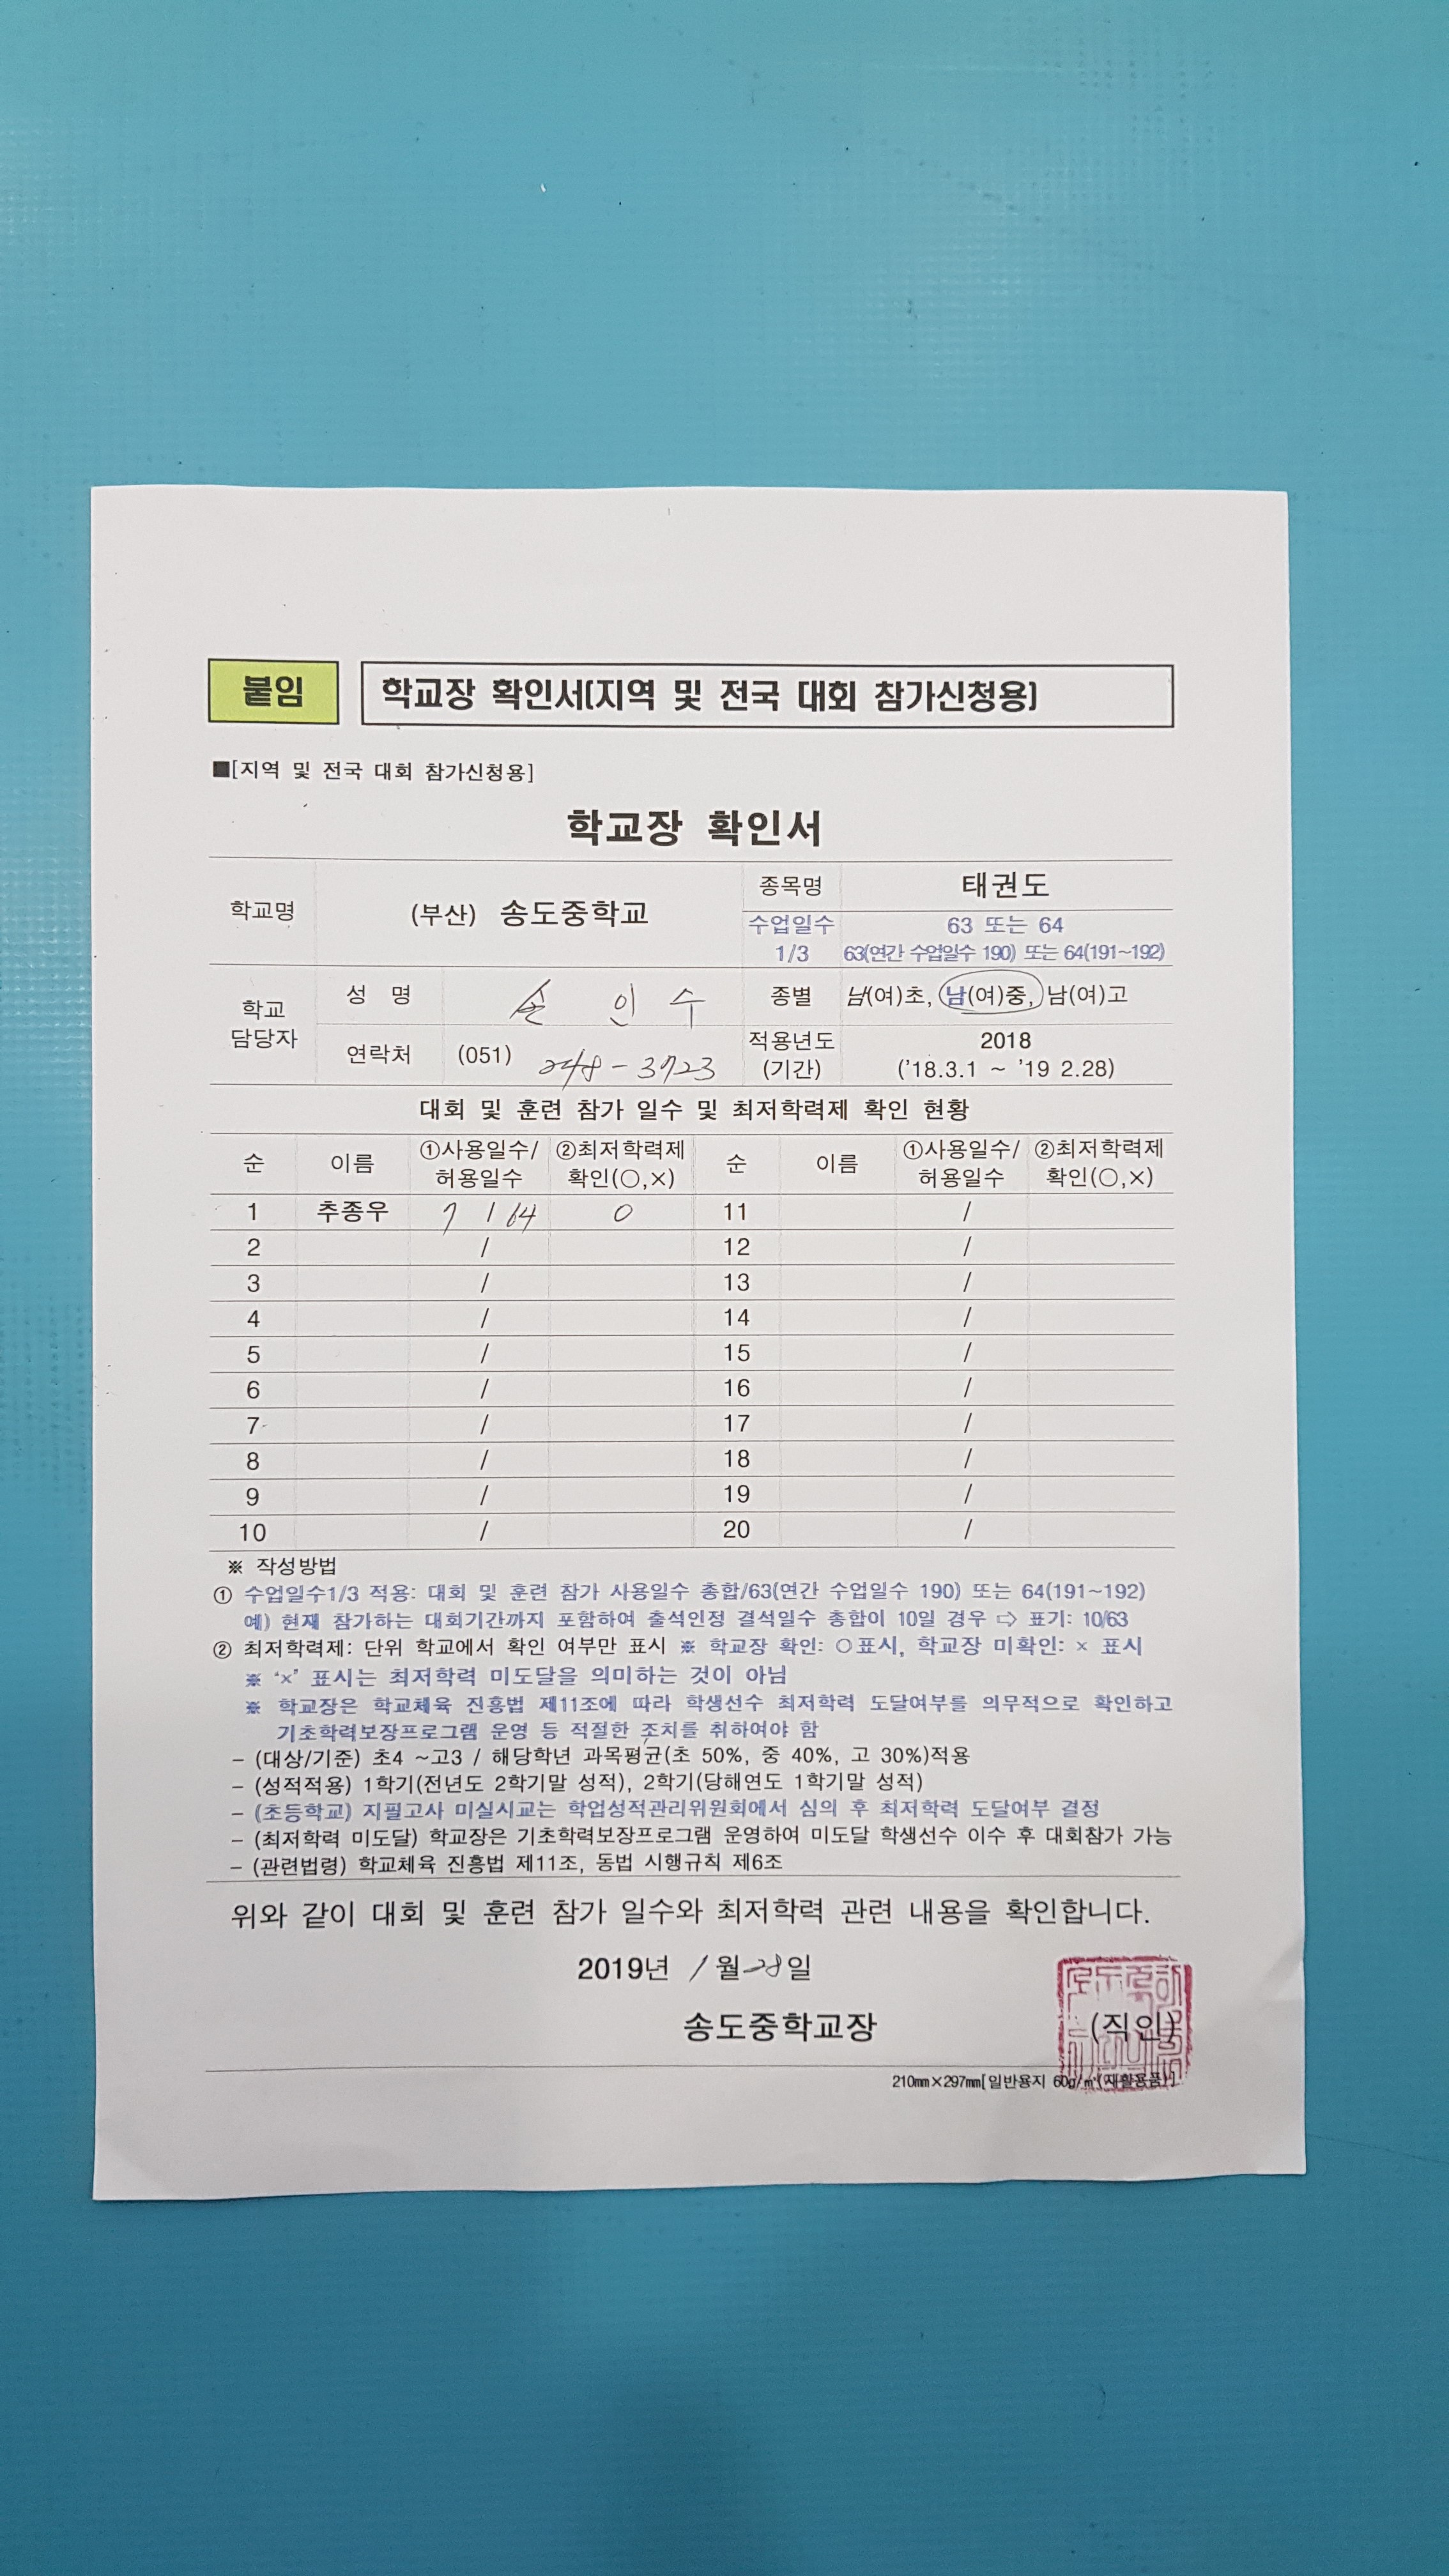 붙임
학교장 확인서(지역 및 전국 대회 참가신청용)
■[지역 및 전국 대회 참가신청용]
학교장 확인서
학교명 (부산) 송도중학교 종목명 태권도
수업일수 1/3 63 또는 64
63(연간 수업일수 190) 또는 64(191~192)
학교 담당자 성 명 손 인 수 종별 남(여)초, 남(여)중, 남(여)고
연락처 (051) 248-3723 적용년도 (기간) 2018
('18.3.1 ~ '19 2.28)
대회 및 훈련 참가 일수 및 최저학력제 확인 현황
순 이름 ①사용일수/허용일수 ②최저학력제 확인(○,×) 순 이름 ①사용일수/허용일수 ②최저학력제 확인(○,×)
1 추종우 7 / 64 ○ 11 /
2 / 12 /
3 / 13 /
4 / 14 /
5 / 15 /
6 / 16 /
7 / 17 /
8 / 18 /
9 / 19 /
10 / 20 /
※ 작성방법
① 수업일수1/3 적용: 대회 및 훈련 참가 사용일수 총합/63(연간 수업일수 190) 또는 64(191~192)
예) 현재 참가하는 대회기간까지 포함하여 출석인정 결석일수 총합이 10일 경우 ⇨ 표기: 10/63
② 최저학력제: 단위 학교에서 확인 여부만 표시 ※ 학교장 확인: ○표시, 학교장 미확인: × 표시
※ '×' 표시는 최저학력 미도달을 의미하는 것이 아님
※ 학교장은 학교체육 진흥법 제11조에 따라 학생선수 최저학력 도달여부를 의무적으로 확인하고
기초학력보장프로그램 운영 등 적절한 조치를 취하여야 함
- (대상/기준) 초4 ~고3 / 해당학년 과목평균(초 50%, 중 40%, 고 30%)적용
- (성적적용) 1학기(전년도 2학기말 성적), 2학기(당해연도 1학기말 성적)
- (초등학교) 지필고사 미실시교는 학업성적관리위원회에서 심의 후 최저학력 도달여부 결정
- (최저학력 미도달) 학교장은 기초학력보장프로그램 운영하여 미도달 학생선수 이수 후 대회참가 가능
- (관련법령) 학교체육 진흥법 제11조, 동법 시행규칙 제6조
위와 같이 대회 및 훈련 참가 일수와 최저학력 관련 내용을 확인합니다.
2019년 1월 28일
송도중학교장 (직인)
210㎜×297㎜[일반용지 60g/㎡(재활용품)]